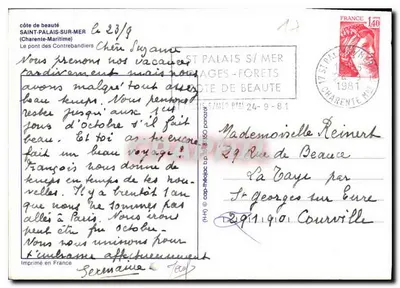 côte de beauté
SAINT-PALAIS-SUR-MER
(Charente-Maritime)
Le pont des Contrebandiers
Le 23/9
Chère Suzanne
Vous prenons nos vacances
tardivement mais nous
avons malgré tout assez
beau temps. Nous pensons
rester jusqu'aux
jours d'octobre s'il fait
beau. Et toi as tu encore
fait un beau voyage?
François nous donne de
temps en temps de tes nou-
velles. Il y a bientôt 1 an
que nous ne sommes pas
allés à Paris. Nous irons
peut être fin octobre.
Nous nous unissons pour
t'embrasser affectueusement
Germaine
Imprimé en France
17
ST PALAIS S/ MER
PLAGES-FORETS
COTE DE BEAUTE
24-9-81
17 ST PALAIS
1981
CHARENTE MME
FRANCE
1,40
Mademoiselle Reinert
29 Rue de Beauce
La Taye par
St Georges sur Eure
28190 Courville